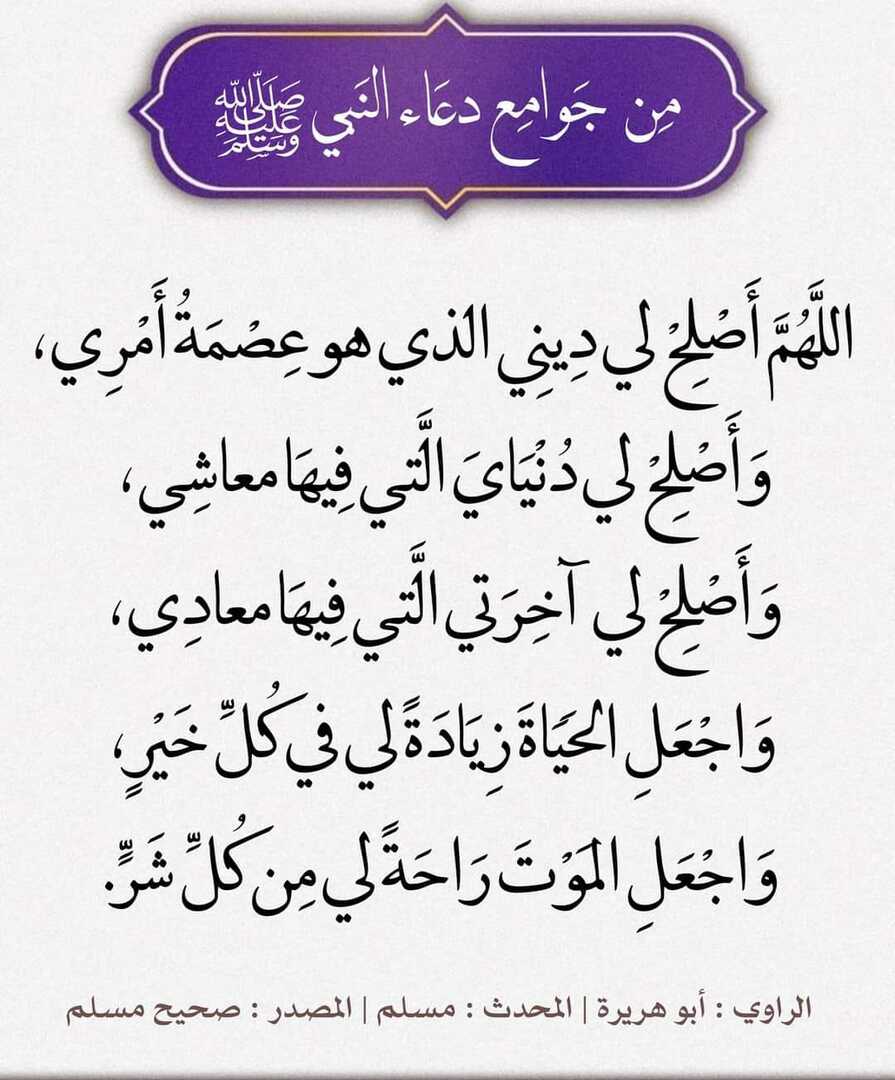 مِن جَوامِع دعَاء النَبي ﷺ
اللَّهُمَّ أَصْلِحْ لي دِينِي الذي هو عِصْمَةُ أَمْرِي،
وَأَصْلِحْ لي دُنْيَايَ الَّتي فِيهَا معاشِي،
وَأَصْلِحْ لي آخِرَتي الَّتي فِيهَا معادِي،
وَاجْعَلِ الحَيَاةَ زِيَادَةً لي في كُلِّ خَيْرٍ،
وَاجْعَلِ المَوْتَ رَاحَةً لي مِن كُلِّ شَرٍّ.
الراوي : أبو هريرة | المحدث : مسلم | المصدر : صحيح مسلم